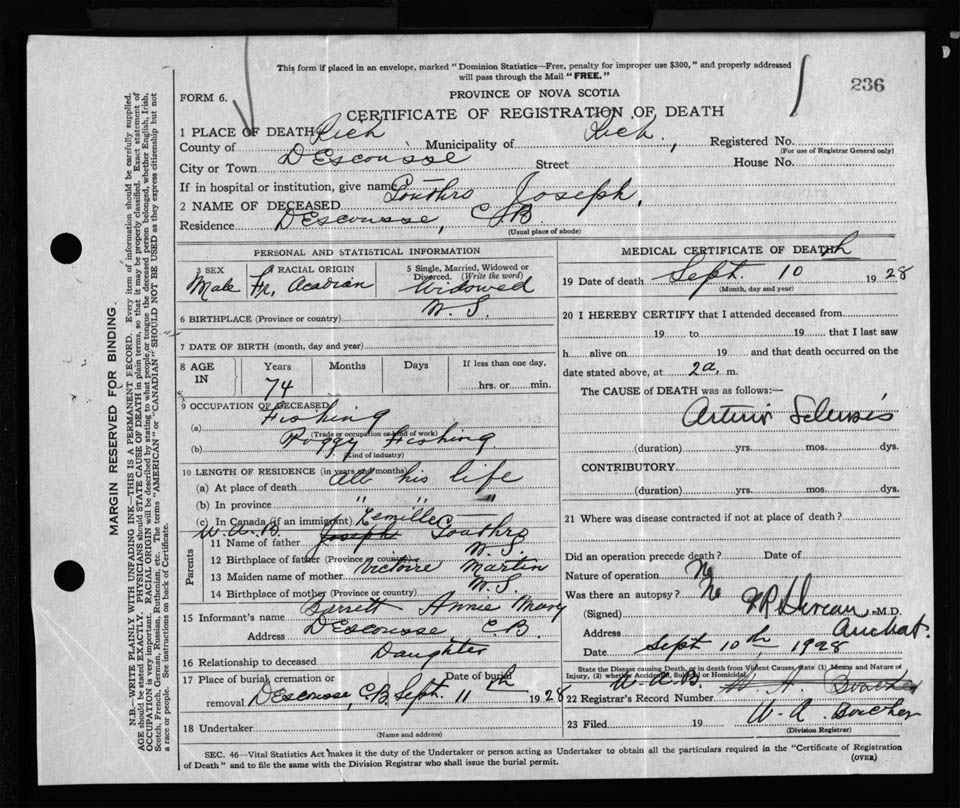 This form if placed in an envelope, marked "Dominion Statistics—Free, penalty for improper use $300," and properly addressed
will pass through the Mail "FREE."
236
PROVINCE OF NOVA SCOTIA
FORM 6.
CERTIFICATE OF REGISTRATION OF DEATH
1 PLACE OF DEATH
County of Rich Municipality of Rich, Registered No.
(For use of Registrar General only)
City or Town DEscousse Street House No.
If in hospital or institution, give name —
2 NAME OF DECEASED Gouthro Joseph,
Residence DEscousse, CB.
(Usual place of abode)
PERSONAL AND STATISTICAL INFORMATION
3 SEX Male
4 RACIAL ORIGIN Fr, Acadian
5 Single, Married, Widowed or
Divorced. (Write the word)
Widowed
6 BIRTHPLACE (Province or country) N. S.
7 DATE OF BIRTH (month, day and year)
8 AGE IN Years Months Days If less than one day,
74 hrs. or min.
9 OCCUPATION OF DECEASED
(a) Fishing
(Trade or occupation or kind of work)
(b) Fishing
(Kind of industry)
10 LENGTH OF RESIDENCE (in years and months)
(a) At place of death all his life
(b) In province " " "
(c) In Canada (if an immigrant) —
Parents
W.A.B. 11 Name of father Joseph Gouthro
12 Birthplace of father (Province or country) N. S.
13 Maiden name of mother Victoire Martin
14 Birthplace of mother (Province or country) N. S.
15 Informant's name Barrett Annie Mary
Address DEscousse C.B.
16 Relationship to deceased Daughter
17 Place of burial, cremation or Date of burial
removal DEscousse, CB, Sept. 11th 1928
18 Undertaker
(Name and address)
MEDICAL CERTIFICATE OF DEATH
19 Date of death Sept. 10 1928
(Month, day and year)
20 I HEREBY CERTIFY that I attended deceased from
19 to 19 that I last saw
h alive on 19 and that death occurred on the
date stated above, at 2 a, m.
The CAUSE of DEATH was as follows:—
(duration) yrs. mos. dys.
CONTRIBUTORY
(duration) yrs. mos. dys.
21 Where was disease contracted if not at place of death?
Did an operation precede death? Date of
Nature of operation No
Was there an autopsy? No
(Signed) M.D.
Address
Date Sept 10th 1928
State the Disease causing Death, or in death from Violent Causes, state (1) Means and Nature of
Injury, (2) whether Accidental, Suicidal or Homicidal.
W.A.B. W. A. Boucher
22 Registrar's Record Number
23 Filed 19 W. A. Boucher
(Division Registrar)
SEC. 46—Vital Statistics Act makes it the duty of the Undertaker or person acting as Undertaker to obtain all the particulars required in the "Certificate of Registration
of Death" and to file the same with the Division Registrar who shall issue the burial permit.
(OVER)
MARGIN RESERVED FOR BINDING.
N.B.—WRITE PLAINLY WITH UNFADING INK—THIS IS A PERMANENT RECORD. Every item of information should be carefully supplied.
AGE should be stated EXACTLY. PHYSICIANS should STATE CAUSE OF DEATH in plain terms, so that it may be properly classified. Exact statement of
OCCUPATION is very important. RACIAL ORIGIN will be described by stating to what people or tongue the deceased person belonged, whether English, Irish,
Scotch, French, German, Russian, Ruthenian, etc. The terms "AMERICAN" or "CANADIAN" SHOULD NOT BE USED as they express citizenship but not
a race or people. See instructions on back of Certificate.